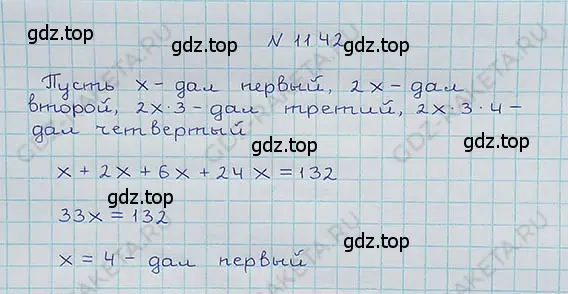 gdz.top gdz.top
N 1142
Пусть x - дал первый, 2x - дал
второй, 2x·3 - дал третий, 2x·3·4 -
дал четвертый
gdz.top gdz.top
x + 2x + 6x + 24x = 132
gdz.top
33x = 132
gdz.top
x = 4 - дал первый
gdz.top
GDZ-RAKETA.RU